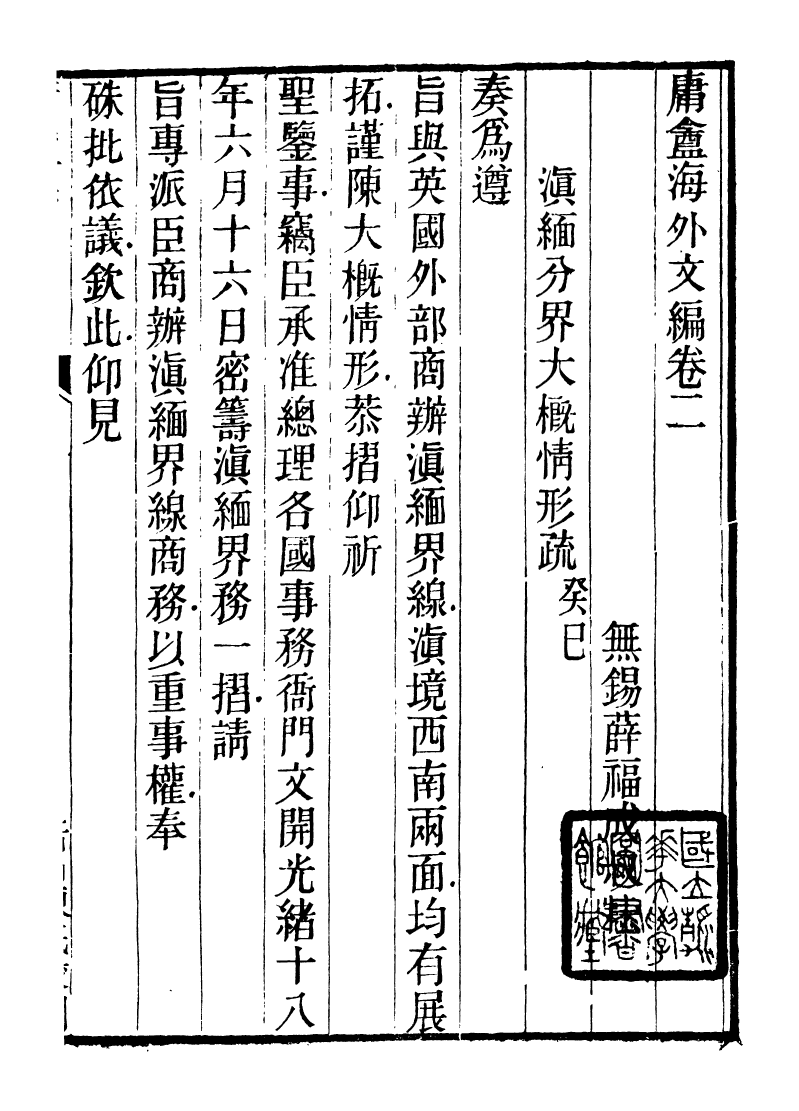 庸盦海外文編卷二
無錫薛福成
滇緬分界大槪情形疏 癸巳
奏爲遵
旨與英國外部商辦滇緬界線滇境西南兩面均有展
拓謹陳大槪情形恭摺仰祈
聖鑒事竊臣承准總理各國事務衙門文開光緒十八
年六月十六日密籌滇緬界務一摺請
旨專派臣商辦滇緬界線商務以重事權奉
硃批依議欽此仰見